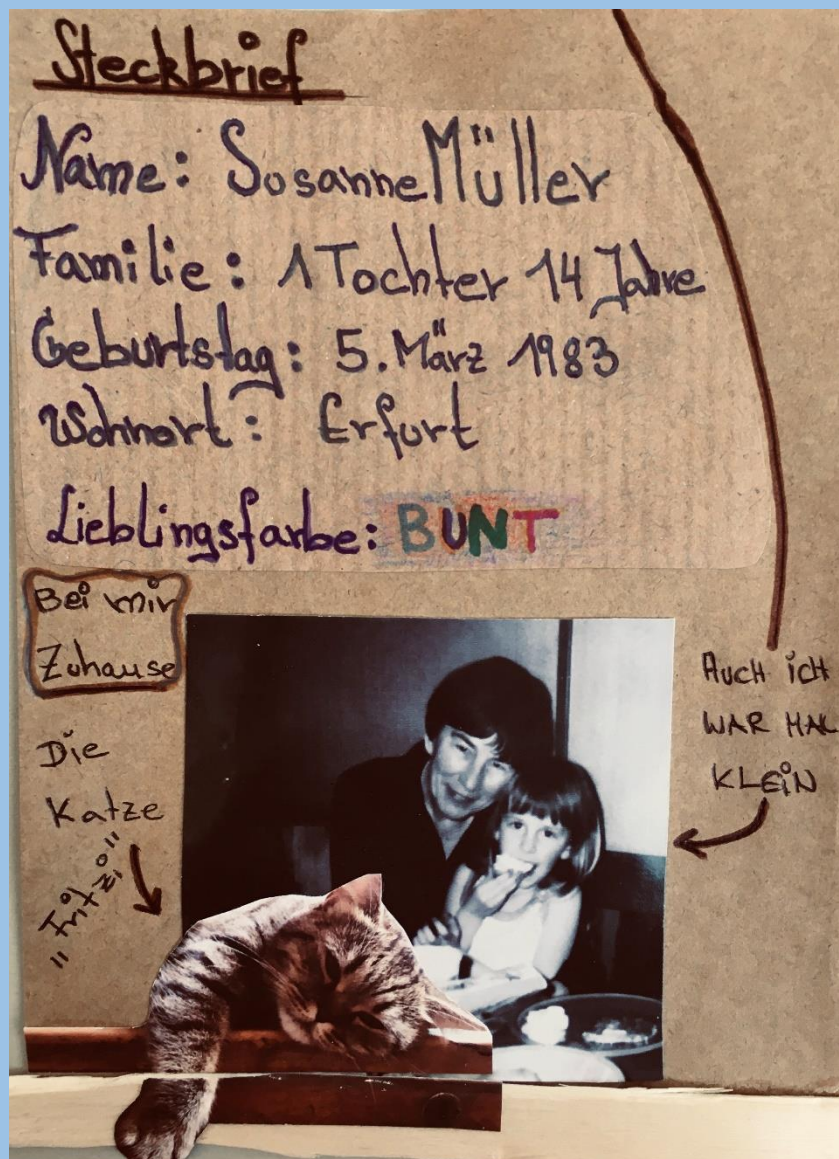 Steckbrief
Name: Susanne Müller
Familie: 1 Tochter 14 Jahre
Geburtstag: 5. März 1983
Wohnort: Erfurt
Lieblingsfarbe: BUNT
Bei mir
Zuhause
Die
Katze
"Fritzi"
AUCH ICH
WAR MAL
KLEIN